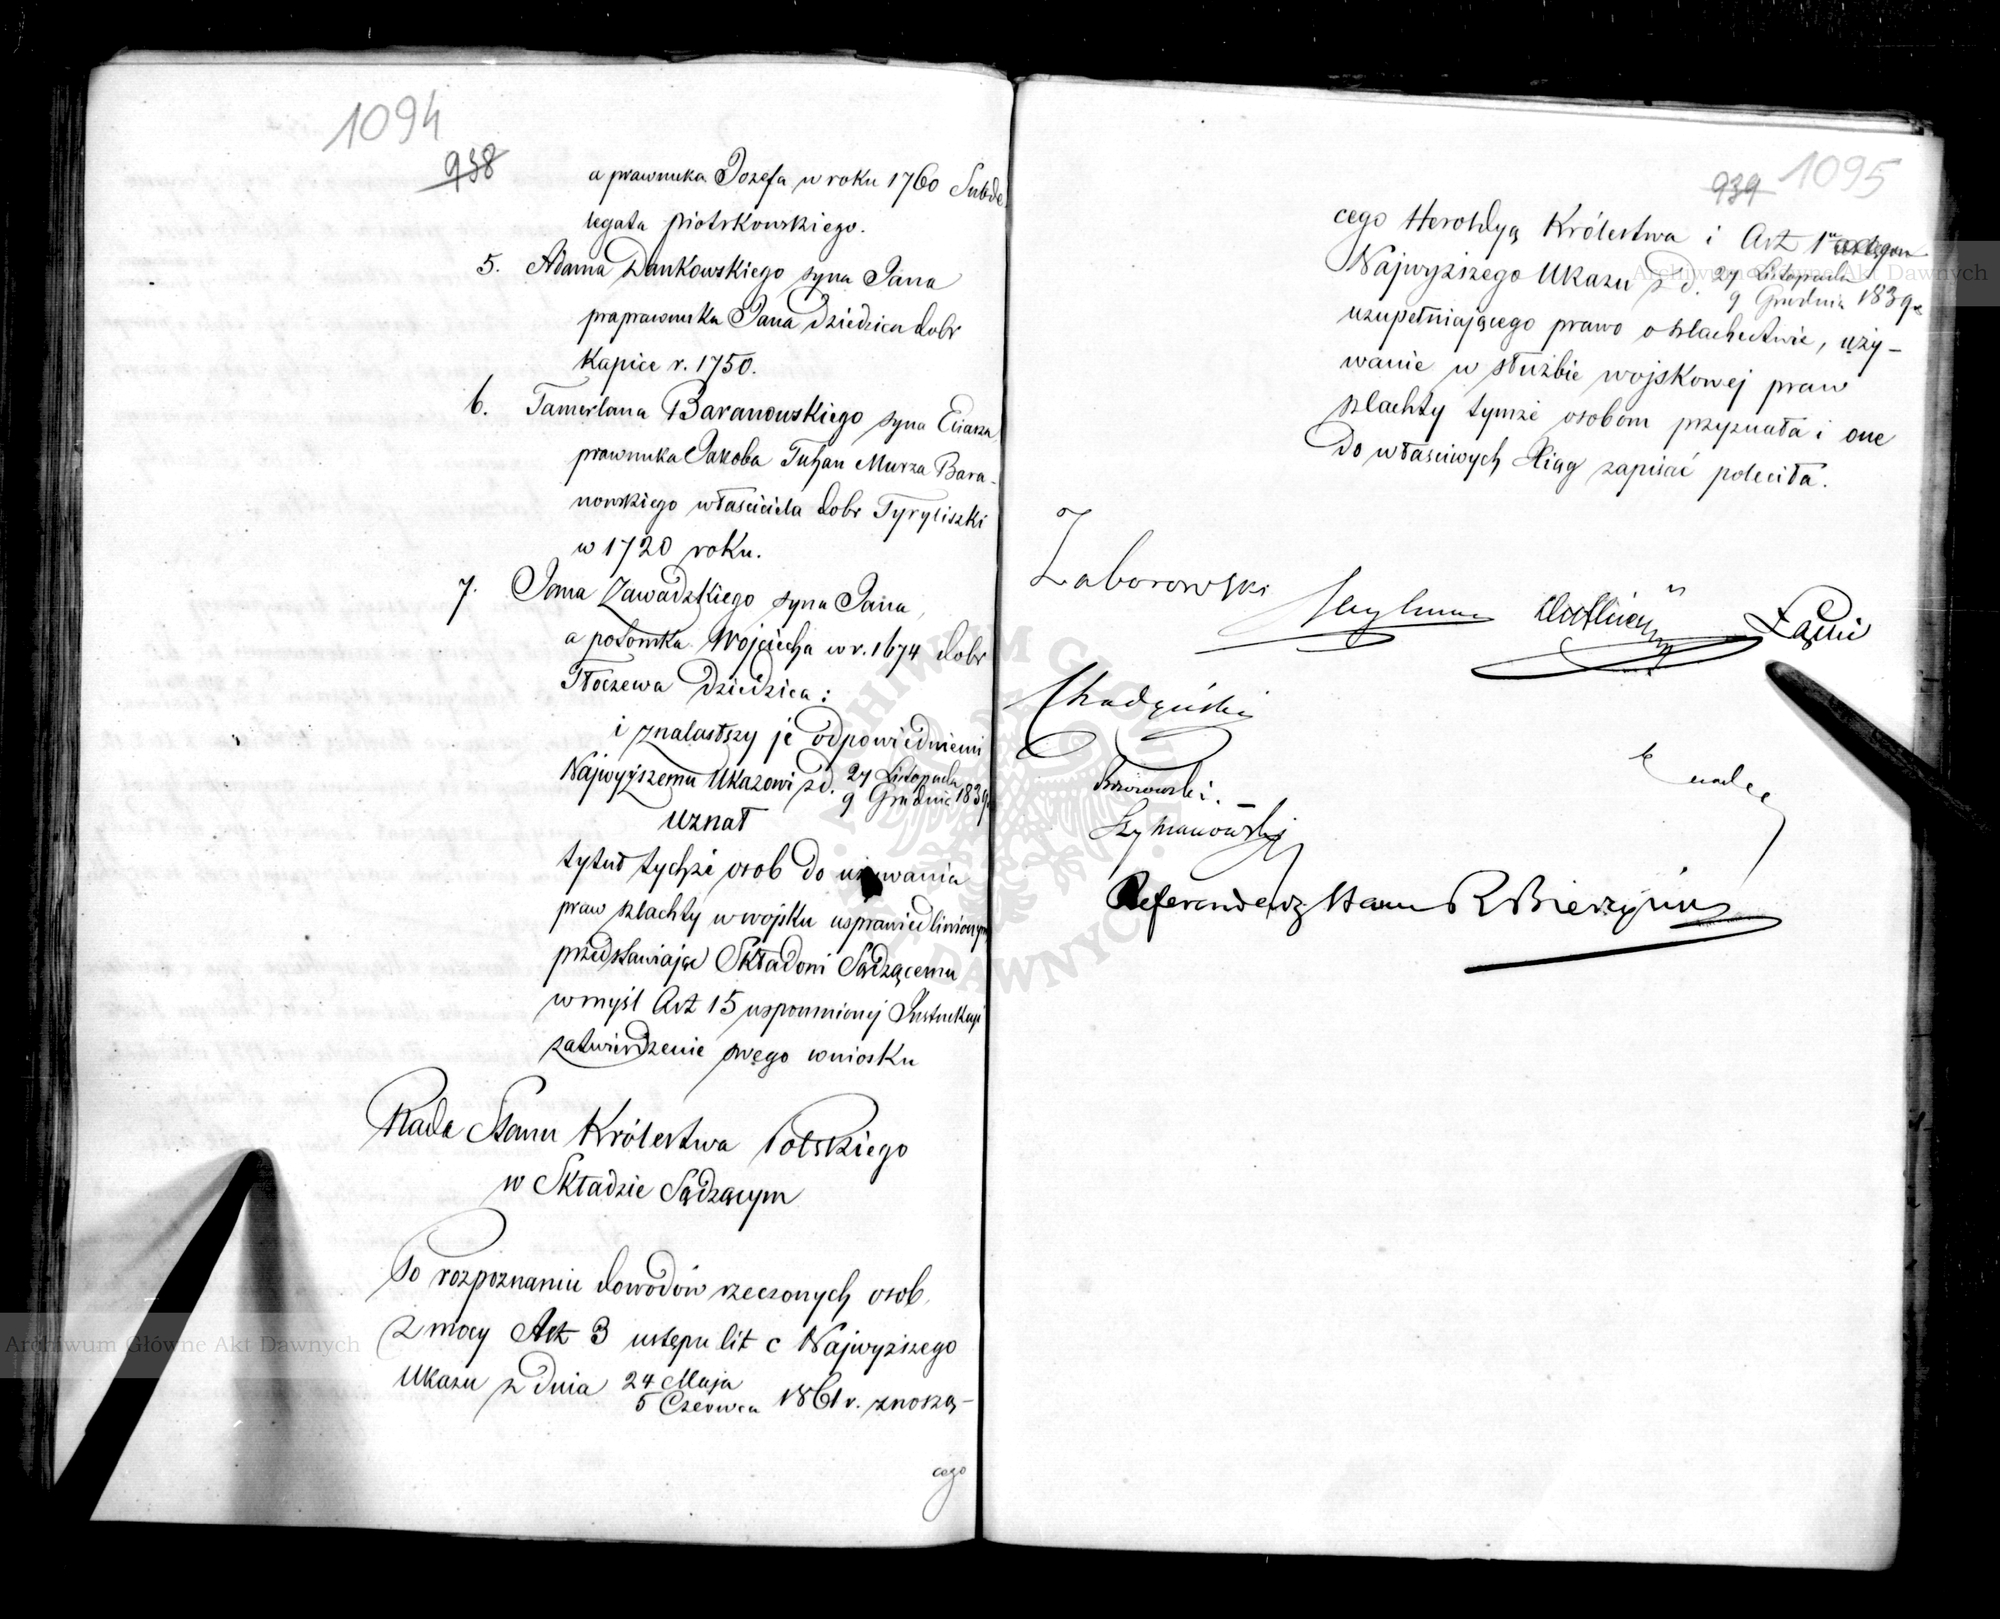 1094
938
a prawnuka Józefa w roku 1760 Subde
legata Piotrkowskiego.
5. Adama Dankowskiego syna Jana
praprawnuka Jana dziedzica dobr
Kapice r. 1750.
6. Tamerlana Baranowskiego syna Eliasza
prawnuka Jakoba Tuhan Murza Bara-
nowskiego właściciela dobr Tyryliszki
w 1720 roku.
7. Jana Zawadzkiego syna Jana,
a potomka Wojciecha w r. 1674 dobr
Tłoczewa dziedzica:
i znalazłszy je odpowiedniemi
Najwyższemu Ukazowi z d. 27 Listopada
9 Grudnia 1839
uznał
tytuł tychże osob do używania
praw szlachty w wojsku usprawiedlinionym
przedstawiając Składoni Sądzącemu
w myśl Art 15 wspomnionej Instrukcyi
zatwierdzenie swego wniosku
Rada Stanu Królestwa Polskiego
w Składzie Sądzącym
Po rozpoznaniu dowodów rzeczonych osob,
z mocy Art 3 ustępu lit c Najwyższego
Ukazu z dnia 24 Maja
5 Czerwca 1861 r. znoszą-
cego
939 1095
cego Heroldyą Królestwa i Art 1
Najwyższego Ukazu z d. 27 Listopada
9 Grudnia 1839 r.
uzupełniającego prawo o szlachectwie, uży-
wanie w służbie wojskowej praw
szlachty tymże osobom przyznała i one
do właściwych Xiąg zapisać poleciła.
Zaborowski
Łaski
Chądzyński
Szymanowski
Referendarz Stanu R Bierzyński
Archiwum Główne Akt Dawnych
Archiwum Główne Akt Dawnych
ARCHIWUM GŁÓWNE AKT DAWNYCH